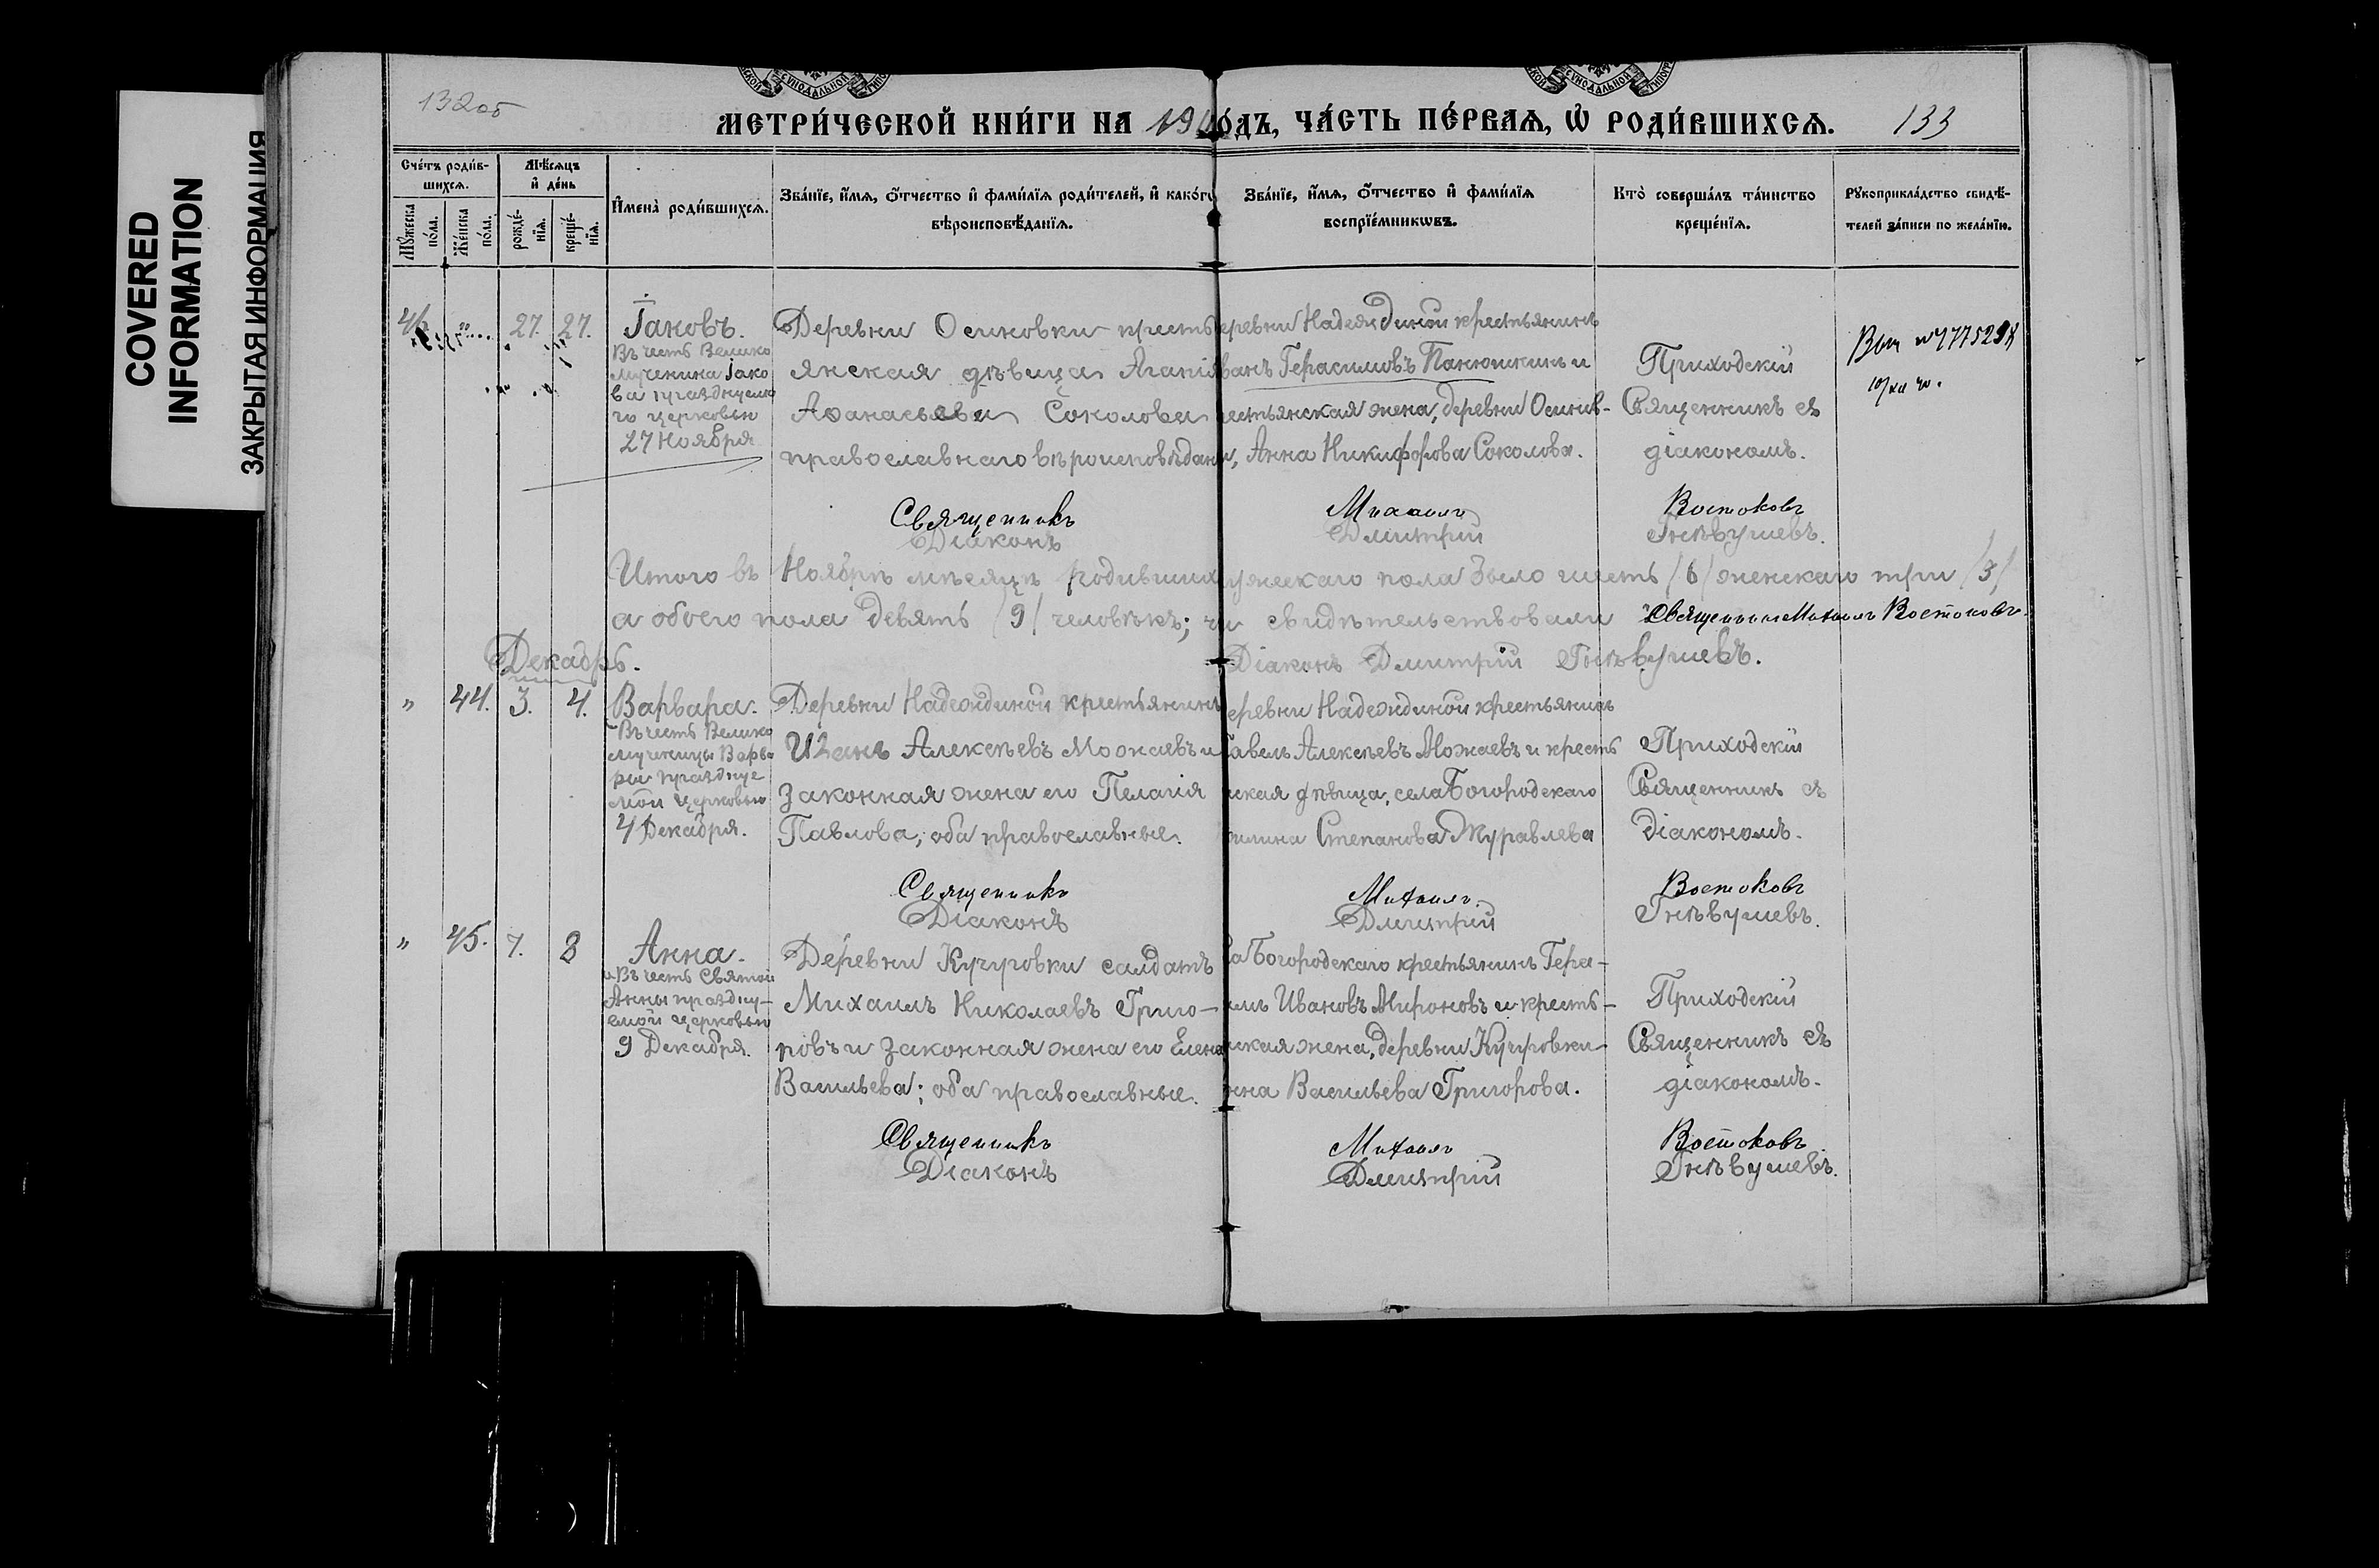 COVERED
INFORMATION
ЗАКРЫТАЯ ИНФОРМАЦИЯ
132об
МЕТРИ́ЧЕСКОЙ КНИ́ГИ НА 19 о́дъ, ЧА́СТЬ ПЕ́РВАѦ, Ѡ҆ РОДИ́ВШИХСѦ.
133
Сче́тъ роди́в-
шихсѧ.
Мꙋ́жеска
по́ла.
Же́нска
по́ла.
Мѣ́сѧцъ
и҆ де́нь
рожде́-
нїѧ.
креще́-
нїѧ.
И҆мена̀ роди́вшихсѧ.
Зва́нїе, и҆́мѧ, ѻ҆́тчество и҆ фамѝлїѧ роди́телей, и҆ како́гѡ
вѣроисповѣ́данїѧ.
Зва́нїе, и҆́мѧ, ѻ҆́тчество и҆ фамѝлїѧ
воспрїе́мникѡвъ.
Кто̀ соверша́лъ та́инство
креще́нїѧ.
Рꙋкоприкла́дство свидѣ́-
телей за́писи по жела́нїю.
27. 27.
Іаковъ.
Въ честь Велико
мученика Іако
ва празднуема
го церковью
27 Ноября
Деревни Осиновки кресть
янская дѣвица Агапія
Аѳанасьева Соколова
православнаго вѣроисповѣдан
еревни Надеждиной крестьянинъ
ванъ Герасимовъ Панюшкинъ и
естьянская жена, деревни Осинов-
и, Анна Никифорова Соколова.
Приходскій
Священникъ съ
діакономъ.
Священникъ Михаилъ Востоковъ
Діаконъ Дмитрій Гнѣвушевъ.
Итого въ Ноябрѣ мѣсяцѣ родивших ужескаго пола было шесть /6/ женскаго три /3/
а обоего пола девять /9/ человѣкъ; свидѣтельствовали Священникъ Михаилъ Востоковъ.
Діаконъ Дмитрій Гнѣвушевъ.
Декабрь.
" 44. 3. 4.
Варвара.
Въ честь Велико
мученицы Варва
ры праздну
мой церковью
4 Декабря.
Деревни Надеждиной крестьянинъ
Иванъ Алексѣевъ Можаевъ и
законная жена его Пелагія
Павлова; оба православные.
еревни Надеждиной крестьянинъ
авелъ Алексѣевъ Можаевъ и кресть
ская дѣвица, села Богородскаго
Степанова Журавлева
Приходскій
Священникъ съ
діакономъ.
Священникъ Михаилъ Востоковъ
Діаконъ Дмитрій Гнѣвушевъ.
" 45. 7. 8
Анна.
Въ честь Святой
Анны праздну-
емой церковью
9 Декабря.
Деревни Кучуровки салдатъ
Михаилъ Николаевъ Григо-
ровъ и законная жена его Елена
Васильева; оба православные.
ла Богородскаго крестьянинъ Гера-
имъ Ивановъ Мироновъ и кресть-
ская жена, деревни Кучуровки
нна Васильева Григорова.
Приходскій
Священникъ съ
діакономъ.
Священникъ Михаилъ Востоковъ
Діаконъ Дмитрій Гнѣвушевъ.